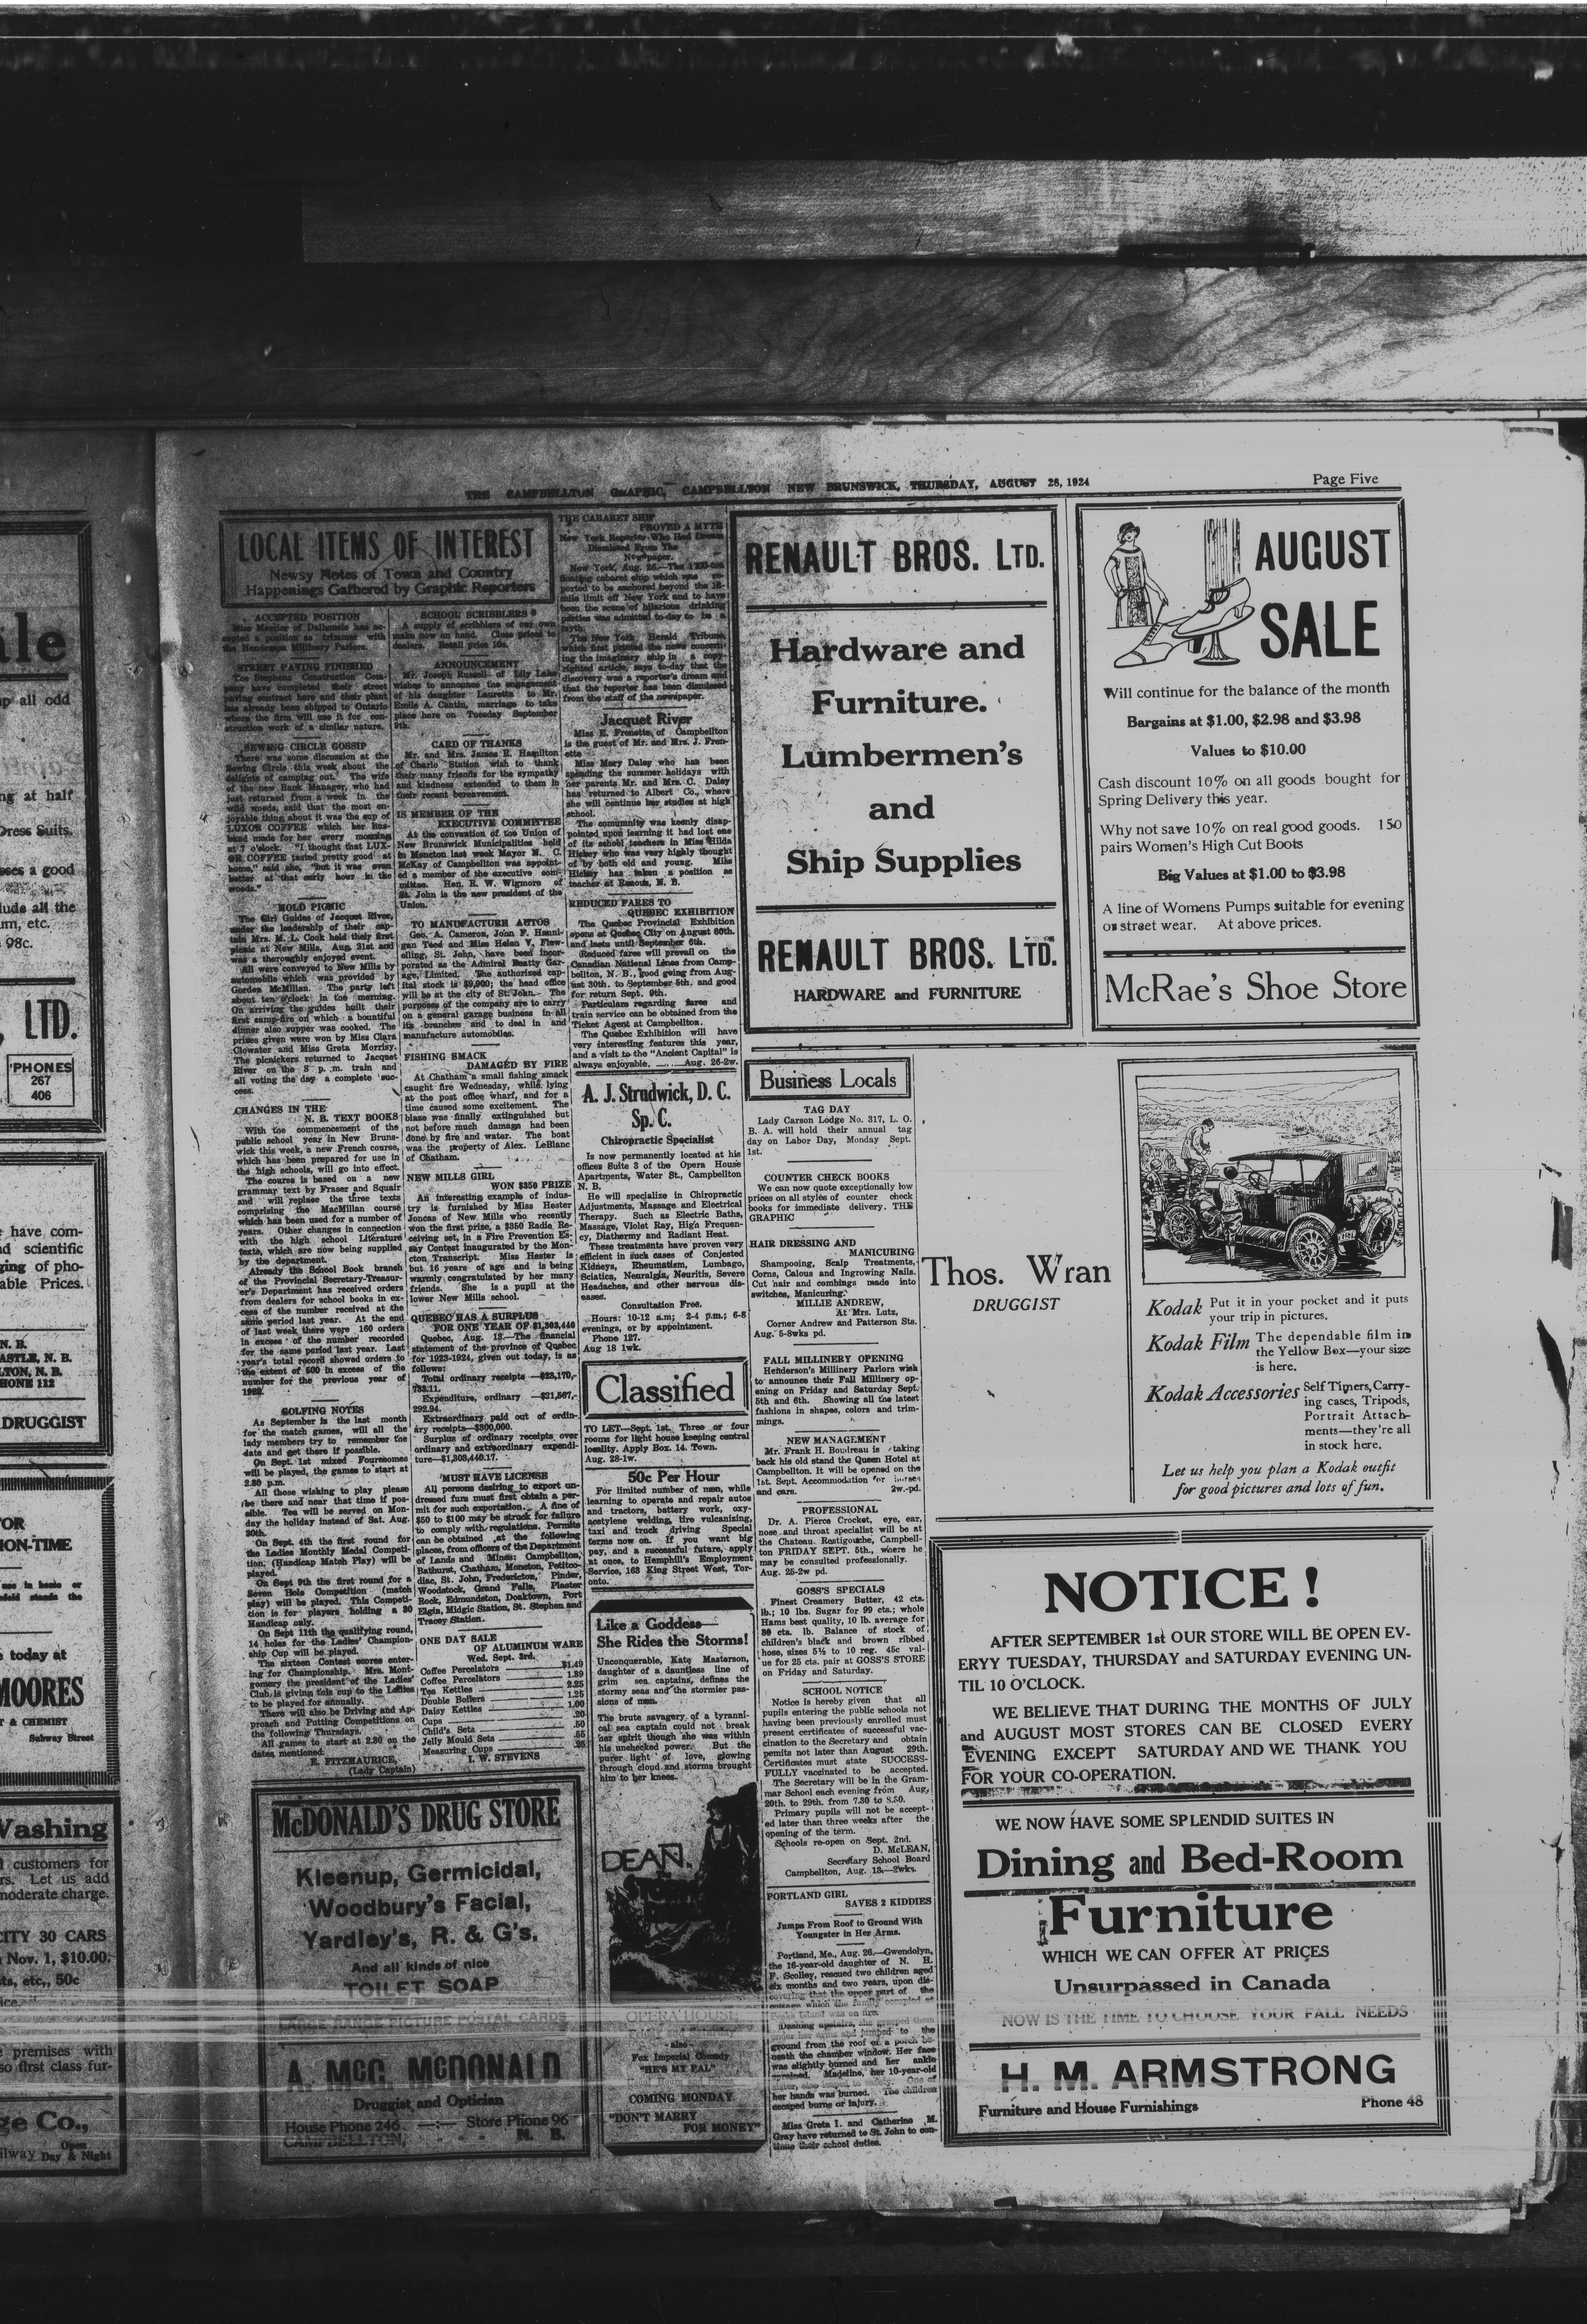 THE CAMPBELLTON GRAPHIC, CAMPBELLTON NEW BRUNSWICK, THURSDAY, AUGUST 28, 1924
Page Five
LOCAL ITEMS OF INTEREST
Newsy Notes of Town and Country
Happenings Gathered by Graphic Reporters
ACCEPTED POSITION
Miss Mercier of Dalhousie has ac-
cepted a position as trimmer with
the Henderson Millinery Parlors.
STREET PAVING FINISHED
The Stephens Construction Com-
pany have completed their street
paving contract here and their plant
has already been shipped to Ontario
where the firm will use it for con-
struction work of a similar nature.
SEWING CIRCLE GOSSIP
There was some discussion at the
Sewing Circle this week about the
delights of camping out. The wife
of the new Bank Manager, who had
just returned from a week in the
wild woods, said that the most en-
joyable thing about it was the cup of
LUXOR COFFEE which her hus-
band made for her every morning
at 7 o'clock. "I thought that LUX-
OR COFFEE tasted pretty good at
home," said she, "but it was even
better at that early hour in the
woods."
HOLD PICNIC
The Girl Guides of Jacquet River,
under the leadership of their cap-
tain Mrs. M. L. Cook held their first
picnic at New Mills, Aug. 21st and
was a thoroughly enjoyed event.
All were conveyed to New Mills by
automobile which was provided by
Gordon McMillan. The party left
about ten o'clock in the morning.
On arriving the guides built their
first camp-fire on which a bountiful
dinner also supper was cooked. The
prizes given were won by Miss Clara
Clowater and Miss Greta Morrisy.
The picnickers returned to Jacquet
River on the 8 p. m. train and
all voting the day a complete suc-
cess.
CHANGES IN THE
N. B. TEXT BOOKS
With the commencement of the
public school year in New Bruns-
wick this week, a new French course,
which has been prepared for use in
the high schools, will go into effect.
The course is based on a new
grammar text by Fraser and Squair
and will replace the three texts
comprising the MacMillan course
which has been used for a number of
years. Other changes in connection
with the high school Literature
texts, which are now being supplied
by the department.
Already the School Book branch
of the Provincial Secretary-Treasur-
er's Department has received orders
from dealers for school books in ex-
cess of the number received at the
same period last year. At the end
of last week there were 160 orders
in excess of the number recorded
for the same period last year. Last
year's total record showed orders to
the extent of 500 in excess of the
number for the previous year of
1922.
GOLFING NOTES
As September is the last month
for the match games, will all the
lady members try to remember the
date and get there if possible.
On Sept. 1st mixed Foursomes
will be played, the games to start at
2.30 p.m.
All those wishing to play please
be there and near that time if pos-
sible. Tea will be served on Mon-
day the holiday instead of Sat. Aug.
30th.
On Sept. 4th the first round for
the Ladies Monthly Medal Competi-
tion, (Handicap Match Play) will be
played.
On Sept 9th the first round for a
Seven Hole Competition (match
play) will be played. This Competi-
tion is for players holding a 30
Handicap only.
On Sept 11th the qualifying round,
14 holes for the Ladies' Champion-
ship Cup will be played.
The sixteen Contest scores enter-
ing for Championship. Mrs. Mont-
gomery the president of the Ladies'
Club is giving this cup to the Ladies
to be played for annually.
There will also be Driving and Ap-
proach and Putting Competitions on
the following Thursdays.
All games to start at 2.30 on the
dates mentioned.
E. FITZMAURICE,
(Lady Captain)
SCHOOL SCRIBBLERS
A supply of scribblers of our own
make now on hand. Close prices to
dealers. Retail price 10c.
ANNOUNCEMENT
Mr. Joseph Russell of Lily Lake
wishes to announce the engagement
of his daughter Lauretta to Mr.
Emile A. Cantin, marriage to take
place here on Tuesday September
9th.
CARD OF THANKS
Mr. and Mrs. James R. Hamilton
of Charlo Station wish to thank
their many friends for the sympathy
and kindness extended to them in
their recent bereavement.
IS MEMBER OF THE
EXECUTIVE COMMITTEE
At the convention of the Union of
New Brunswick Municipalities held
in Moncton last week Mayor M. C.
McKay of Campbellton was appoint-
ed a member of the executive com-
mittee. Hon. R. W. Wigmore of
St. John is the new president of the
Union.
TO MANUFACTURE AUTOS
Geo. A. Cameron, John F. Hanni-
gan Teed and Miss Helen V. Flew-
elling, St. John, have been incor-
porated as the Admiral Beatty Gar-
age, Limited. The authorized cap-
ital stock is $9,900; the head office
will be at the city of St. John. The
purposes of the company are to carry
on a general garage business in all
its branches and to deal in and
manufacture automobiles.
FISHING SMACK
DAMAGED BY FIRE
At Chatham a small fishing smack
caught fire Wednesday, while lying
at the post office wharf, and for a
time caused some excitement. The
blaze was finally extinguished but
not before much damage had been
done by fire and water. The boat
was the property of Alex. LeBlanc
of Chatham.
NEW MILLS GIRL
WON $350 PRIZE
An interesting example of indus-
try is furnished by Miss Hester
Joncas of New Mills who recently
won the first prize, a $350 Radio Re-
ceiving set, in a Fire Prevention Es-
say Contest inaugurated by the Mon-
cton Transcript. Miss Hester is
but 16 years of age and is being
warmly congratulated by her many
friends. She is a pupil at the
lower New Mills school.
QUEBEC HAS A SURPLUS
FOR ONE YEAR OF $1,303,440
Quebec, Aug. 13.—The financial
statement of the province of Quebec
for 1923-1924, given out today, is as
follows:
Total ordinary receipts —$23,170,-
733.11.
Expenditure, ordinary —$21,567,-
292.94.
Extraordinary paid out of ordin-
ary receipts—$300,000.
Surplus of ordinary receipts over
ordinary and extraordinary expendi-
ture—$1,303,440.17.
MUST HAVE LICENSE
All persons desiring to export un-
dressed furs must first obtain a per-
mit for such exportation. A fine of
$50 to $100 may be struck for failure
to comply with regulations. Permits
can be obtained at the following
places, from officers of the Department
of Lands and Mines: Campbellton,
Bathurst, Chatham, Moncton, Petitco-
diac, St. John, Fredericton, Pinder,
Woodstock, Grand Falls, Plaster
Rock, Edmundston, Doaktown, Port
Elgin, Midgic Station, St. Stephen and
Tracey Station.
ONE DAY SALE
OF ALUMINUM WARE
Wed. Sept. 3rd.
Coffee Percolators $1.49
Coffee Percolators 1.39
Tea Kettles 2.25
Double Boilers 1.25
Daisy Kettles 1.00
Cups .20
Child's Sets .50
Jelly Mould Sets .55
Measuring Cups .25
I. W. STEVENS
McDONALD'S DRUG STORE
Kleenup, Germicidal,
Woodbury's Facial,
Yardley's, R. & G's,
And all kinds of nice
TOILET SOAP
LARGE RANGE PICTURE POSTAL CARDS
A. McG. McDONALD
Druggist and Optician
House Phone 246 —:— Store Phone 96
CAMPBELLTON, - - - - N. B.
THE CABARET SHIP
PROVED A MYTH
New York Reporter Who Had Dream
Dismissed From The
Newspaper.
New York, Aug. 26.—The 17,000-ton
floating cabaret ship which was re-
ported to be anchored beyond the 12-
mile limit off New York and to have
been the scene of hilarious drinking
parties was admitted to-day to be a
myth.
The New York Herald Tribune,
which first printed the news concern-
ing the imaginary ship in a copy-
righted article, says to-day that the
discovery was a reporter's dream and
that the reporter has been dismissed
from the staff of the newspaper.
Jacquet River
Miss E. Frenette of Campbellton
is the guest of Mr. and Mrs. J. Fren-
ette
Miss Mary Daley who has been
spending the summer holidays with
her parents Mr. and Mrs. C. Daley
has returned to Albert Co., where
she will continue her studies at high
school.
The community was keenly disap-
pointed upon learning it had lost one
of its school teachers in Miss Hilda
Hickey who was very highly thought
of by both old and young. Miss
Hickey has taken a position as
teacher at Renous, N. B.
REDUCED FARES TO
QUEBEC EXHIBITION
The Quebec Provincial Exhibition
opens at Quebec City on August 60th.
and lasts until September 6th.
Reduced fares will prevail on the
Canadian National Lines from Camp-
bellton, N. B., good going from Aug-
ust 30th. to September 5th. and good
for return Sept. 9th.
Particulars regarding fares and
train service can be obtained from the
Ticket Agent at Campbellton.
The Quebec Exhibition will have
very interesting features this year,
and a visit to the "Ancient Capital" is
always enjoyable. ...... Aug. 26-2w.
A. J. Strudwick, D. C.
Sp. C.
Chiropractic Specialist
Is now permanently located at his
offices Suite 3 of the Opera House
Apartments, Water St., Campbellton
N. B.
He will specialize in Chiropractic
Adjustments, Massage and Electrical
Therapy. Such as Electric Baths,
Massage, Violet Ray, High Frequen-
cy, Diathermy and Radiant Heat.
These treatments have proven very
efficient in such cases of Conjested
Kidneys, Rheumatism, Lumbago,
Sciatica, Neuralgia, Neuritis, Severe
Headaches, and other nervous dis-
eases.
Consultation Free.
Hours: 10-12 a.m; 2-4 p.m.; 6-8
evenings, or by appointment.
Phone 127.
Aug 18 1wk.
Classified
TO LET—Sept. 1st. Three or four
rooms for light house keeping central
locality. Apply Box. 14. Town.
Aug. 28-1w.
50c Per Hour
For limited number of men, while
learning to operate and repair autos
and tractors, battery work, oxy-
acetylene welding, tire vulcanizing,
taxi and truck driving Special
terms now on. If you want big
pay, and a successful future, apply
at once, to Hemphill's Employment
Service, 163 King Street West, Tor-
onto.
Like a Goddess—
She Rides the Storms!
Unconquerable, Kate Masterson,
daughter of a dauntless line of
grim sea captains, defines the
stormy seas and the stormier pas-
sions of men.
The brute savagery of a tyranni-
cal sea captain could not break
her spirit though she was within
his unchecked power. But the
purer light of love, glowing
through cloud and storms brought
him to her knees.
DEAN.
OPERA HOUSE
- also -
Fox Imperial Comedy
"HE'S MY PAL"
COMING MONDAY.
"DON'T MARRY
FOR MONEY"
RENAULT BROS. LTD.
Hardware and
Furniture.
Lumbermen's
and
Ship Supplies
RENAULT BROS. LTD.
HARDWARE and FURNITURE
Business Locals
TAG DAY
Lady Carson Lodge No. 317, L. O.
B. A. will hold their annual tag
day on Labor Day, Monday Sept.
1st.
COUNTER CHECK BOOKS
We can now quote exceptionally low
prices on all styles of counter check
books for immediate delivery. THE
GRAPHIC
HAIR DRESSING AND
MANICURING
Shampooing, Scalp Treatments,
Corns, Calous and Ingrowing Nails.
Cut hair and combings made into
switches, Manicuring.
MILLIE ANDREW,
At Mrs. Lutz,
Corner Andrew and Patterson Sts.
Aug. 5-8wks pd.
FALL MILLINERY OPENING
Henderson's Millinery Parlors wish
to announes their Fall Millinery op-
ening on Friday and Saturday Sept.
5th and 6th. Showing all the latest
fashions in shapes, colors and trim-
mings.
NEW MANAGEMENT
Mr. Frank H. Boudreau is taking
back his old stand the Queen Hotel at
Campbellton. It will be opened on the
1st. Sept. Accommodation for horses
and cars. 2w.-pd.
PROFESSIONAL
Dr. A. Pierce Crocket, eye, ear,
nose and throat specialist will be at
the Chateau. Restigouche, Campbell-
ton FRIDAY SEPT. 5th., where he
may be consulted professionally.
Aug. 25-2w pd.
GOSS'S SPECIALS
Finest Creamery Butter, 42 cts.
lb.; 10 lbs. Sugar for 99 cts.; whole
Hams best quality, 10 lb. average for
30 cts. lb. Balance of stock of
children's black and brown ribbed
hose, sizes 5½ to 10 reg. 45c val-
ue for 25 cts. pair at GOSS'S STORE
on Friday and Saturday.
SCHOOL NOTICE
Notice is hereby given that all
pupils entering the public schools not
having been previously enrolled must
present certificates of successful vac-
cination to the Secretary and obtain
pemits not later than August 29th.
Certificates must state SUCCESS-
FULLY vaccinated to be accepted.
The Secretary will be in the Gram-
mar School each evening from Aug,
20th. to 29th. from 7.30 to 8.30.
Primary pupils will not be accept-
ed later than three weeks after the
opening of the term.
Schools re-open on Sept. 2nd.
D. McLEAN,
Secretary School Board
Campbellton, Aug. 13.—2wks.
PORTLAND GIRL
SAVES 2 KIDDIES
Jumps From Roof to Ground With
Youngster in Her Arms.
Portland, Me., Aug. 26.—Gwendolyn,
the 16-year-old daughter of N. H.
F. Scolley, rescued two children aged
six months and two years, upon dis-
covering that the upper part of the
cottage which the family occupied at
Island was on fire.
Dashing upstairs, she grasped them
under her arms and jumped to the
ground from the roof of a porch be-
neath the chamber window. Her face
was slightly burned and her ankle
sprained. Madeline, her 10-year-old
sister, also leaped to safety. One of
her hands was burned. The children
escaped burns or injury.
Miss Greta I. and Catherine M.
Gray have returned to St. John to con-
tinue their school duties.
AUGUST
SALE
Will continue for the balance of the month
Bargains at $1.00, $2.98 and $3.98
Values to $10.00
Cash discount 10% on all goods bought for
Spring Delivery this year.
Why not save 10% on real good goods. 150
pairs Women's High Cut Boots
Big Values at $1.00 to $3.98
A line of Womens Pumps suitable for evening
or street wear. At above prices.
McRae's Shoe Store
Thos. Wran
DRUGGIST
Kodak Put it in your pocket and it puts
your trip in pictures.
Kodak Film The dependable film in
the Yellow Box—your size
is here.
Kodak Accessories Self Timers, Carry-
ing cases, Tripods,
Portrait Attach-
ments—they're all
in stock here.
Let us help you plan a Kodak outfit
for good pictures and lots of fun.
NOTICE!
AFTER SEPTEMBER 1st OUR STORE WILL BE OPEN EV-
ERYY TUESDAY, THURSDAY and SATURDAY EVENING UN-
TIL 10 O'CLOCK.
WE BELIEVE THAT DURING THE MONTHS OF JULY
and AUGUST MOST STORES CAN BE CLOSED EVERY
EVENING EXCEPT SATURDAY AND WE THANK YOU
FOR YOUR CO-OPERATION.
WE NOW HAVE SOME SPLENDID SUITES IN
Dining and Bed-Room
Furniture
WHICH WE CAN OFFER AT PRICES
Unsurpassed in Canada
NOW IS THE TIME TO CHOOSE YOUR FALL NEEDS
H. M. ARMSTRONG
Furniture and House Furnishings Phone 48
ale
up all odd
ng at half
Dress Suits.
sses a good
lude all the
um, etc.
98c.
, LTD.
'PHONES
267
406
have com-
nd scientific
ging of pho-
able Prices.
N. B.
ASTLE, N. B.
LTON, N. B.
HONE 112
DRUGGIST
FOR
ION-TIME
use in home or
stands the
today at
MOORES
T & CHEMIST
Subway Street
Washing
customers for
rs. Let us add
moderate charge.
CITY 30 CARS
Nov. 1, $10.00.
sts, etc,, 50c
premises with
so first class fur-
ge Co.,
ilway Open
Day & Night